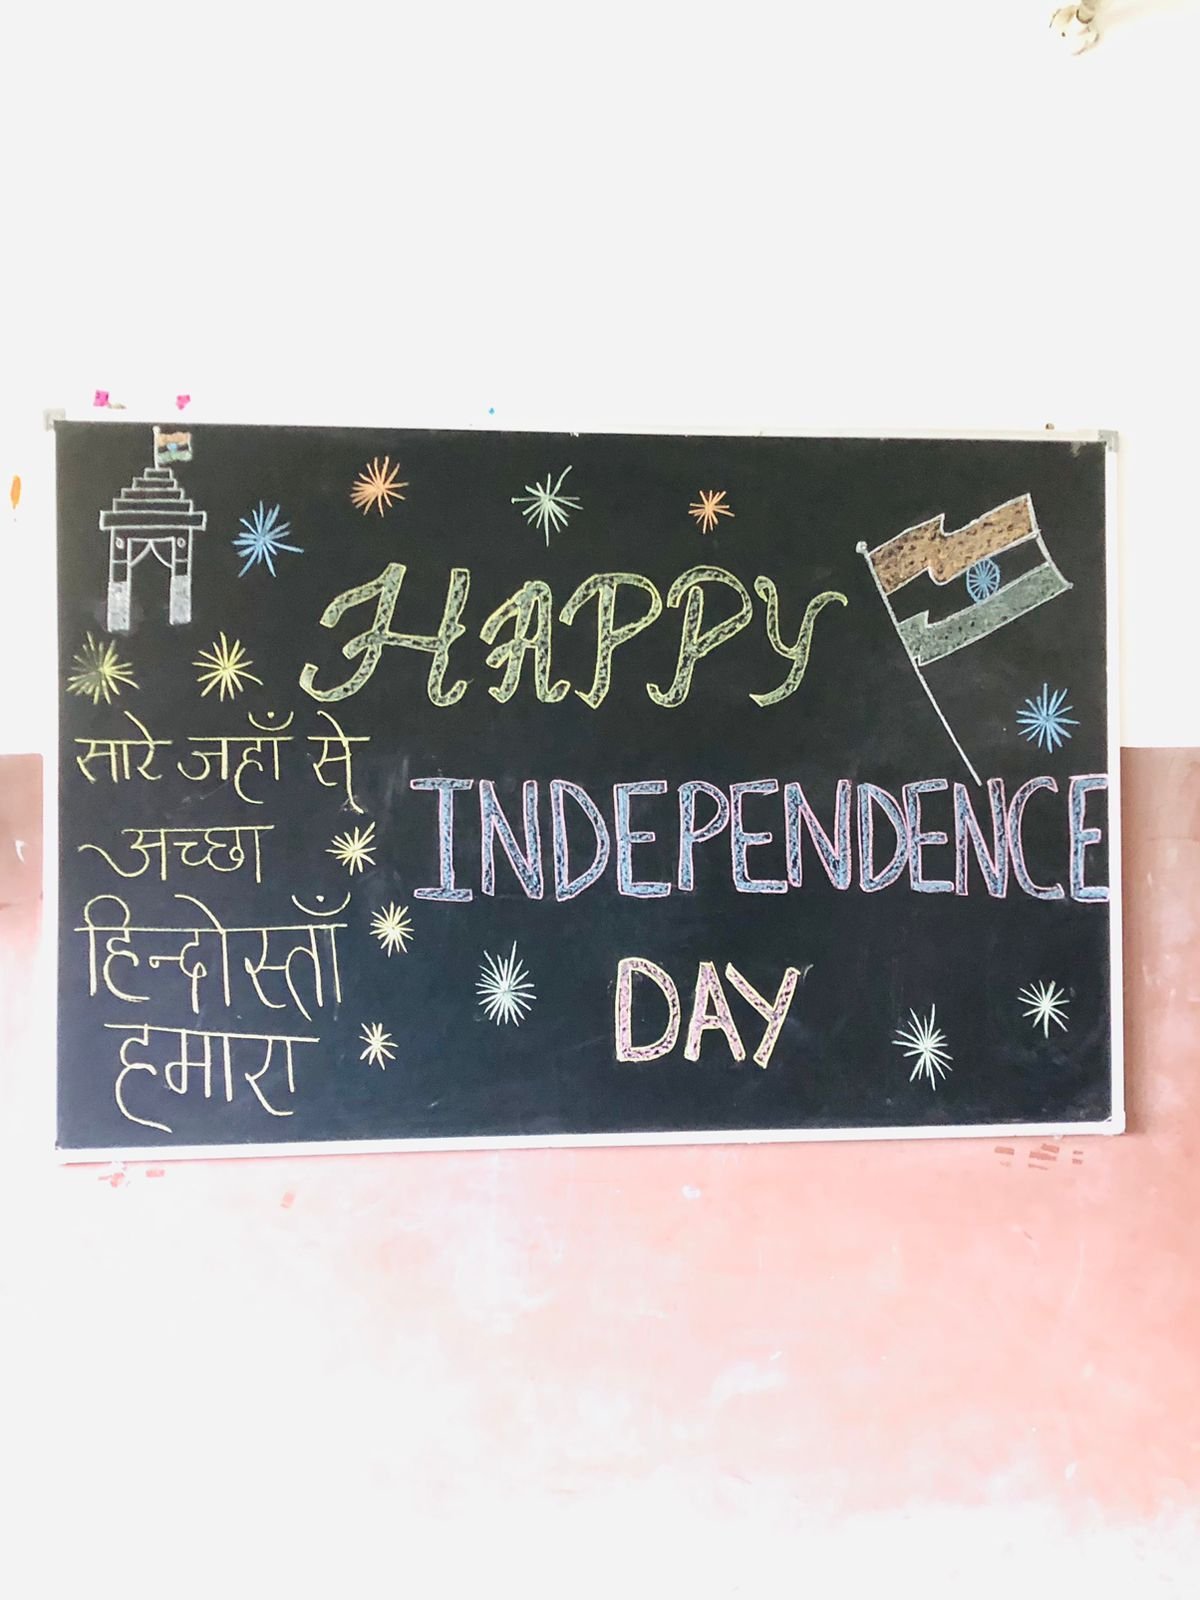 HAPPY
INDEPENDENCE
DAY
सारे जहाँ से
अच्छा
हिन्दोस्ताँ
हमारा